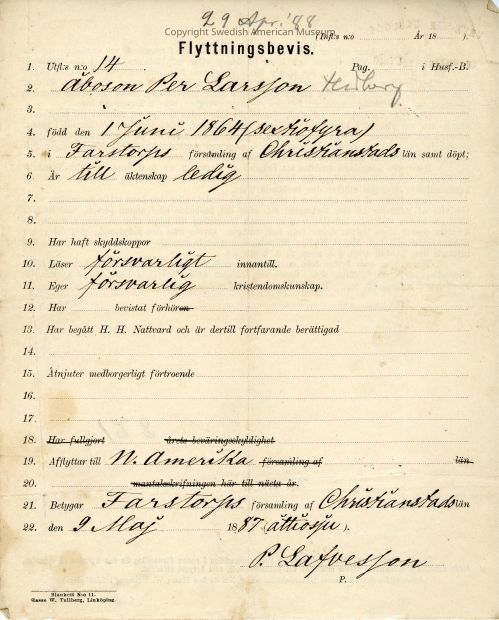 29 Apr. '88
Copyright Swedish American Museum
(Infl:s n:o År 18 ).
Flyttningsbevis.
1. Utfl:s n:o 14 Pag. i Husf.-B.
2. Åboson Per Larsson
3.
4. född den 1 Juni 1864 (sextiofyra)
5. i Farstorps församling af Christianstads län samt döpt;
6. Är till äktenskap ledig
7.
8.
9. Har haft skyddskoppor
10. Läser försvarligt innantill.
11. Eger försvarlig kristendomskunskap.
12. Har bevistat förhören
13. Har begått H. H. Nattvard och är dertill fortfarande berättigad
14.
15. Åtnjuter medborgerligt förtroende
16.
17.
18. Har fullgjort årets beväringsskyldighet
19. Afflyttar till N. Amerika församling af län
20. mantalsskrifningen här till nästa år.
21. Betygar Farstorps församling af Christianstads län
22. den 9 Maj 1887 (åttiosju).
P. Lafvesson
P.
Blankett N:o 11.
Gusse W. Tullberg, Linköping.